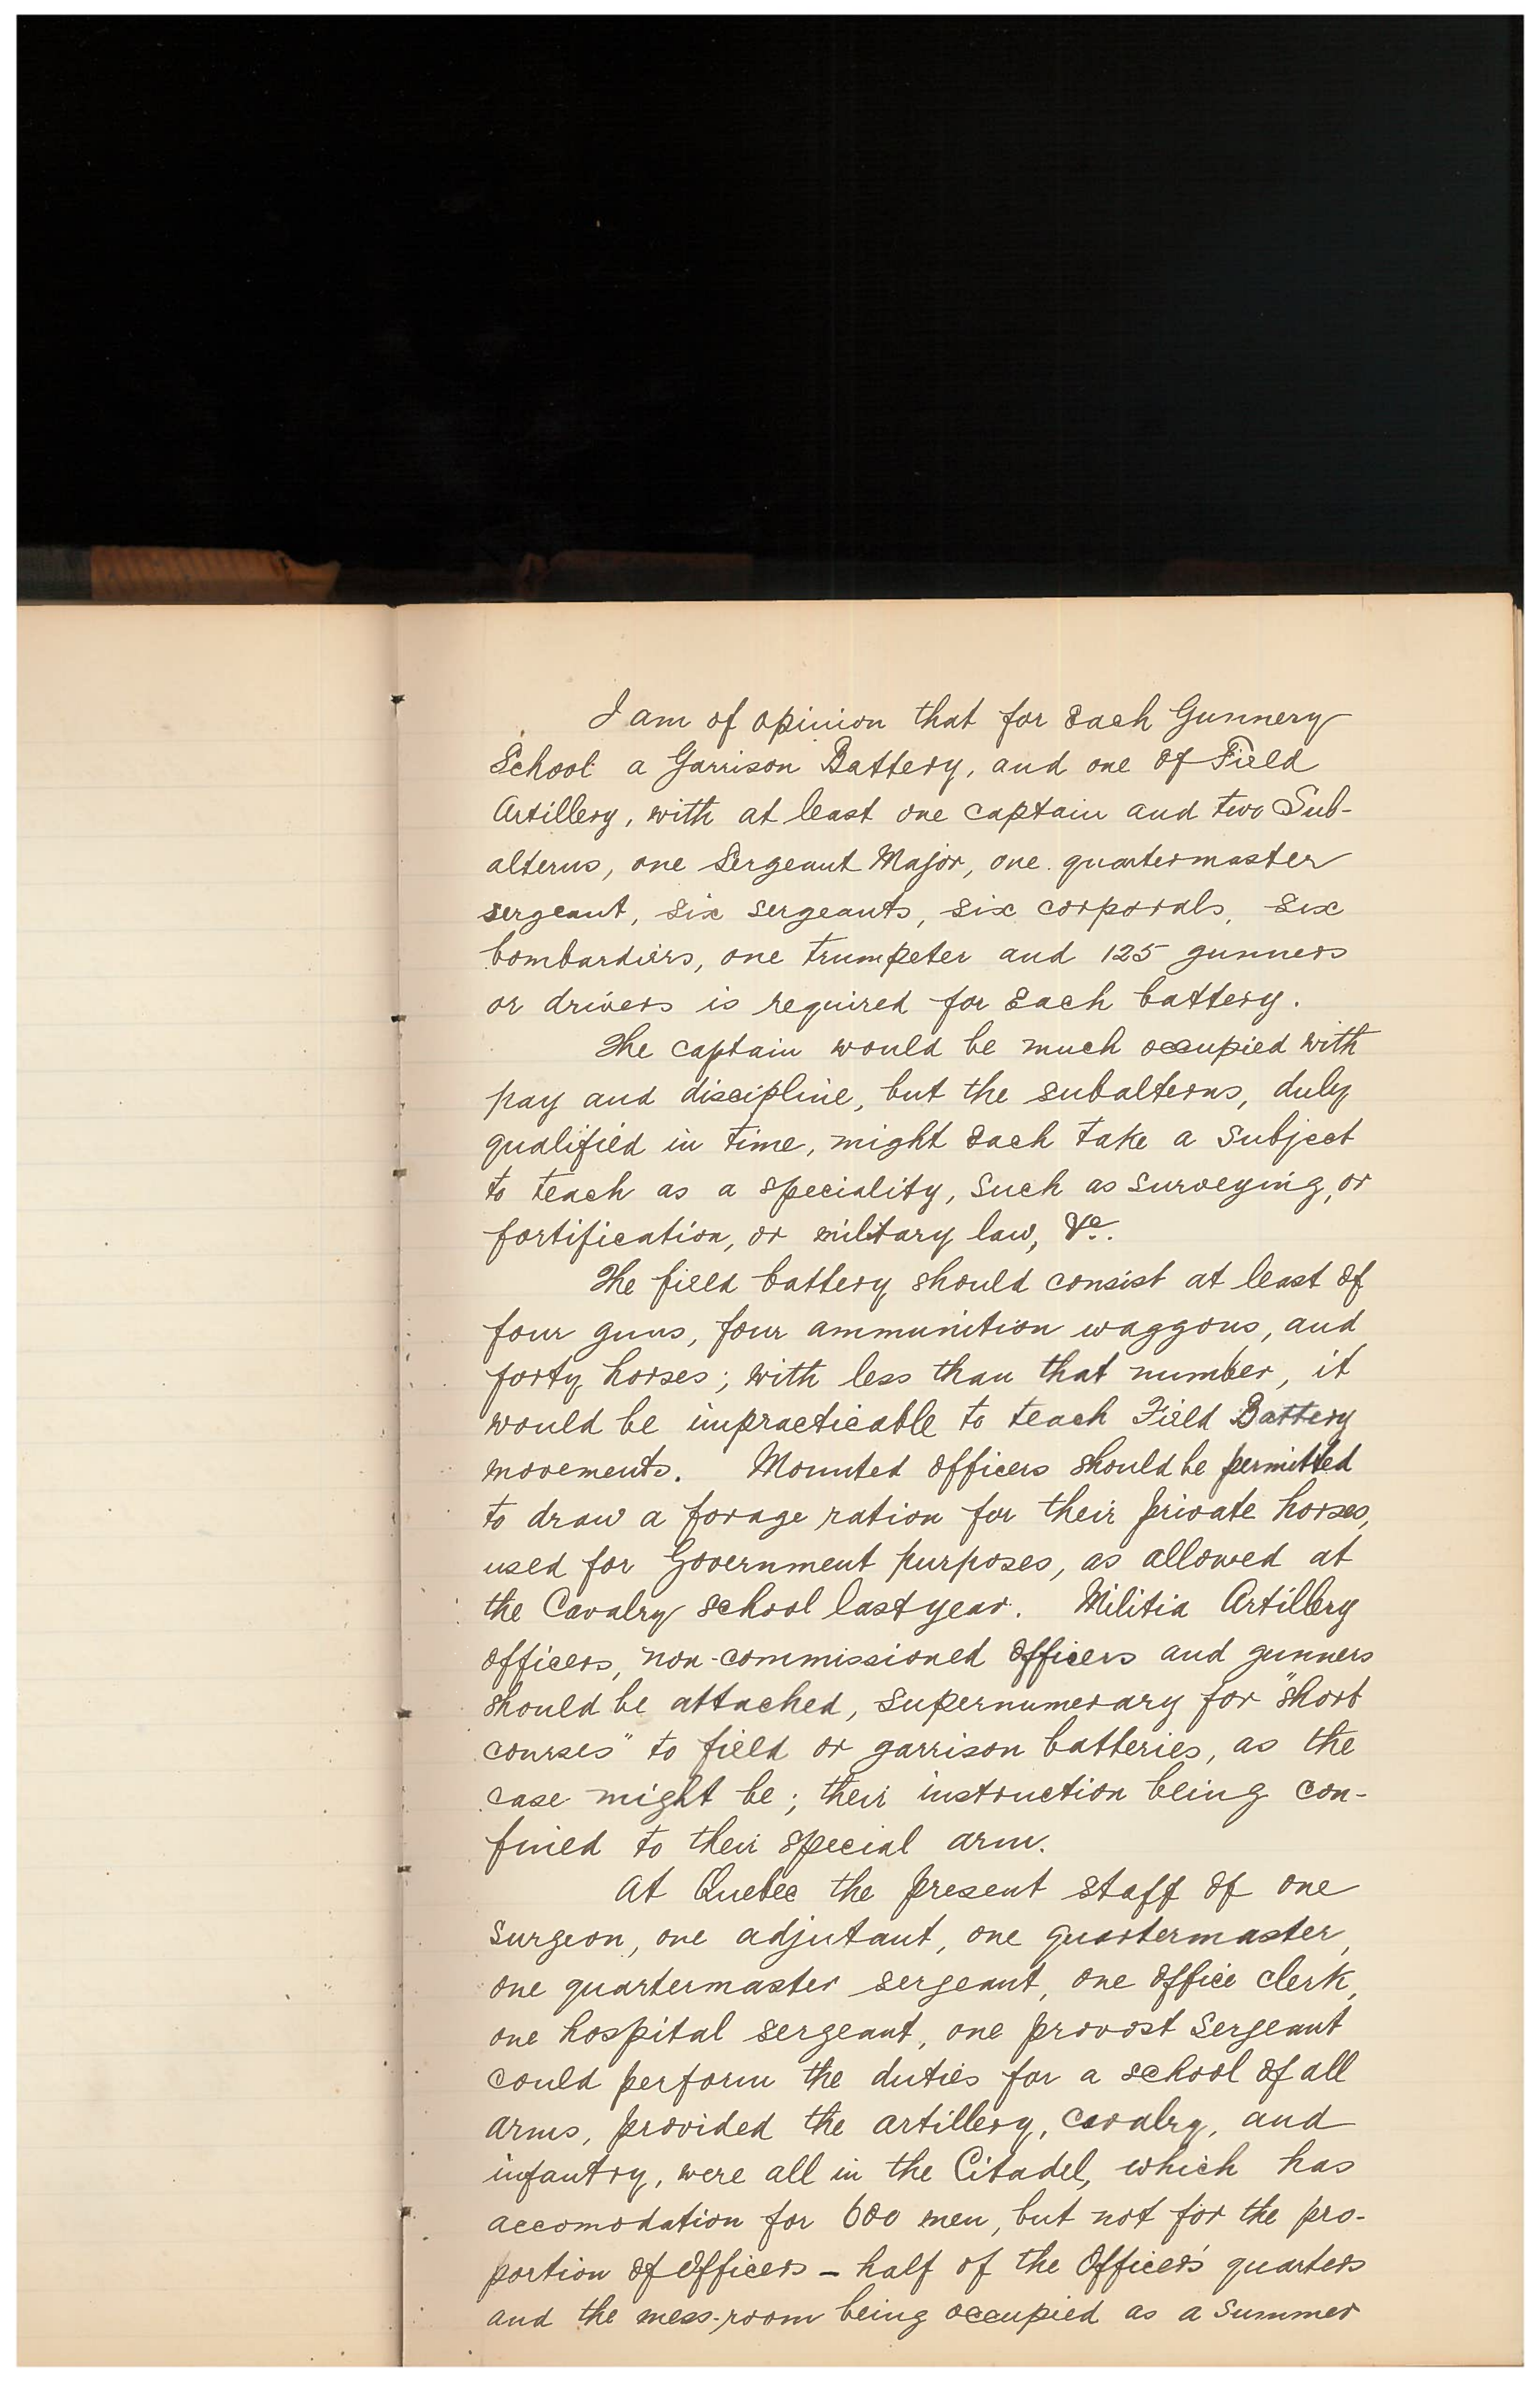 I am of opinion that for each Gunnery
School a Garrison Battery, and one of Field
Artillery, with at least one captain and two Sub-
alterns, one Sergeant Major, one quartermaster
sergeant, six sergeants, six corporals, six
bombardiers, one trumpeter and 125 gunners
or drivers is required for each battery.
The captain would be much occupied with
pay and discipline, but the subalterns, duly
qualified in time, might each take a subject
to teach as a speciality, such as surveying, or
fortification, or military law, &c.
The field battery should consist at least of
four guns, four ammunition waggons, and
forty horses; with less than that number, it
would be impracticable to teach Field Battery
movements. Mounted officers should be permitted
to draw a forage ration for their private horses,
used for Government purposes, as allowed at
the Cavalry school last year. Militia Artillery
officers, non-commissioned officers and gunners
should be attached, supernumerary for "short
courses" to field or garrison batteries, as the
case might be; their instruction being con-
fined to their special arm.
At Quebec the present staff of one
surgeon, one adjutant, one quartermaster,
one quartermaster sergeant, one office clerk,
one hospital sergeant, one provost sergeant
could perform the duties for a school of all
arms, provided the artillery, cavalry, and
infantry, were all in the Citadel, which has
accomodation for 600 men, but not for the pro-
portion of officers - half of the Officers' quarters
and the mess-room being occupied as a summer